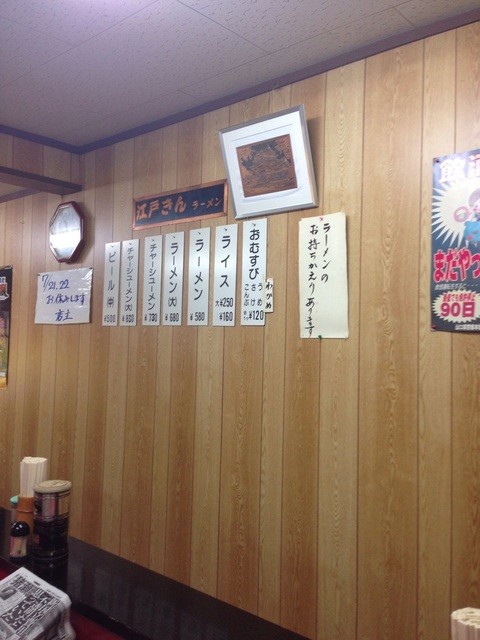 江戸きん ラーメン
ラーメンの
お持ちかえり あります
わかめ
おむすび うめ さけ こんぶ ¥120
ライス 大¥250 ¥160
ラーメン ¥580
ラーメン(大) ¥680
チャーシューメン ¥730
チャーシューメン(大) ¥830
ビール(中) ¥500
7/21.22
お休みします
店主
まだやっ
90日